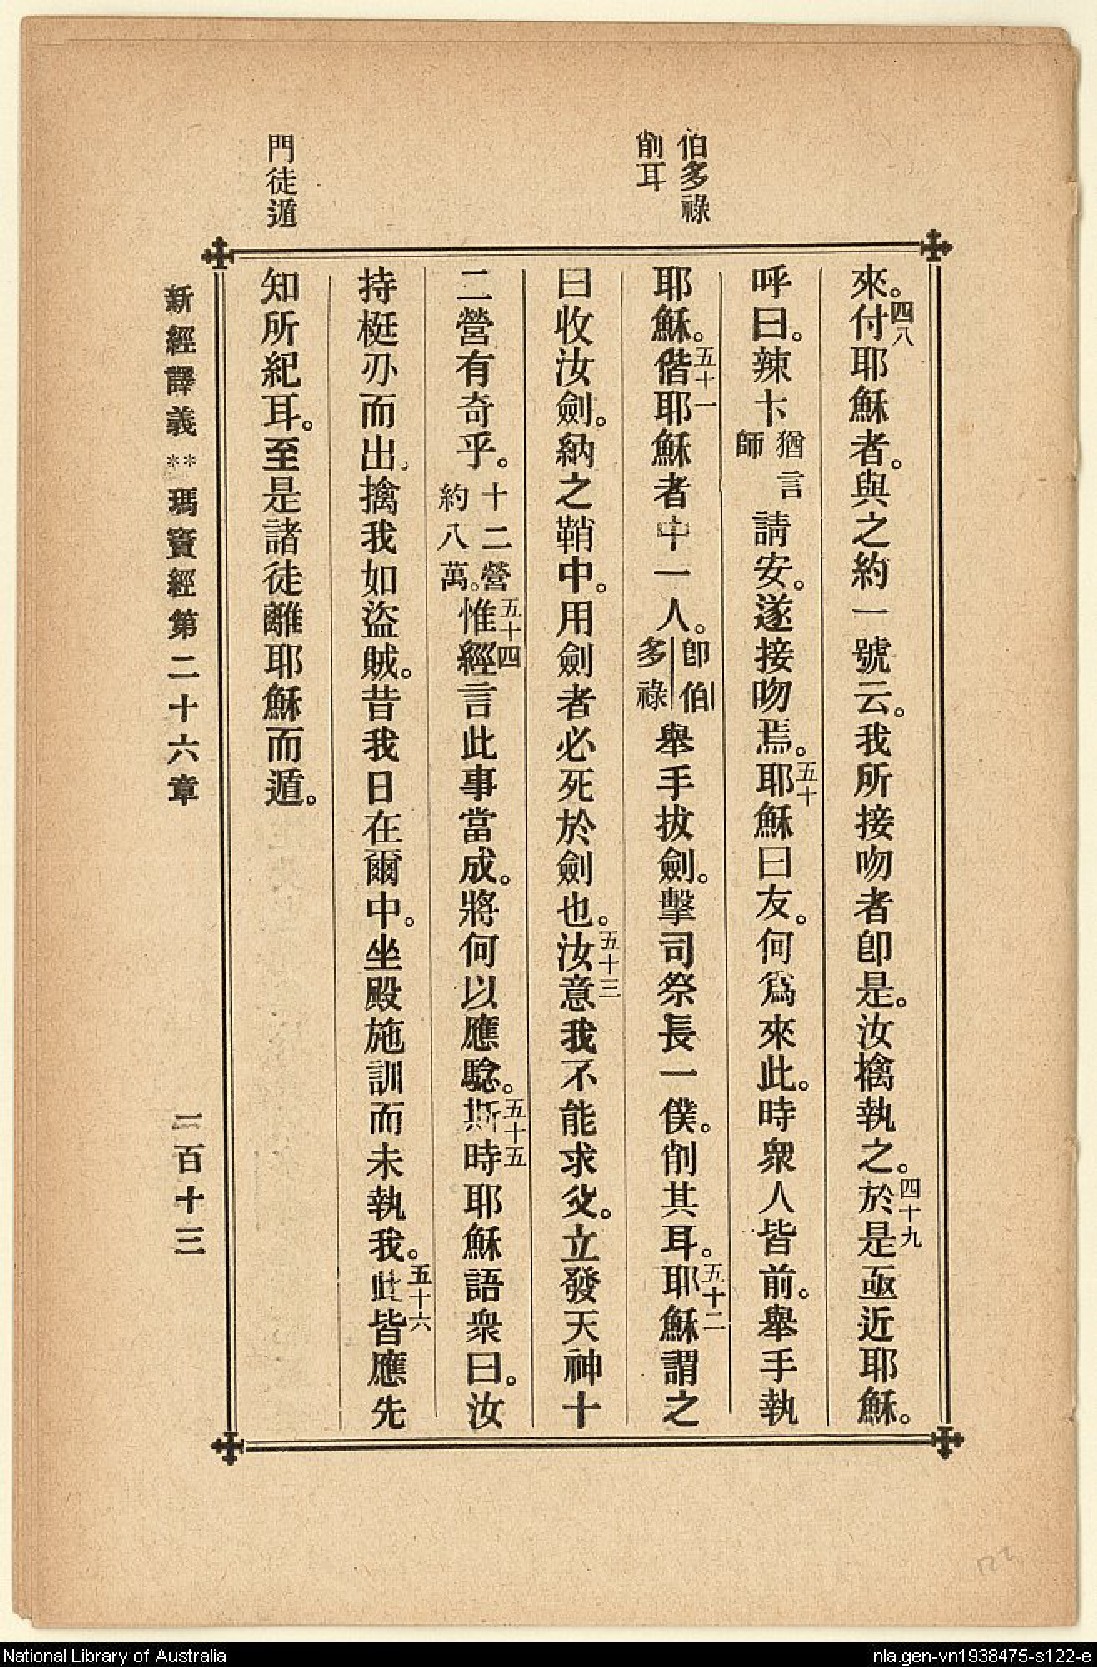 伯多祿
削耳
門徒遁
來。四八付耶穌者。與之約一號云。我所接吻者卽是。汝擒執之。四十九於是亟近耶穌。
呼曰。辣卞猶言師請安。遂接吻焉。五十耶穌曰友。何爲來此。時衆人皆前。舉手執
耶穌。五十一偕耶穌者中一人。卽伯多祿舉手拔劍。擊司祭長一僕。削其耳。五十二耶穌謂之
曰收汝劍。納之鞘中。用劍者必死於劍也。五十三汝意我不能求父。立發天神十
二營有奇乎。十二營約八萬。五十四惟經言此事當成。將何以應驗。五十五斯時耶穌語衆曰。汝
持梃刅而出。擒我如盜賊。昔我日在爾中。坐殿施訓而未執我。五十六此皆應先
知所紀耳。至是諸徒離耶穌而遁。
新經譯義**瑪竇經第二十六章 二百十三
National Library of Australia
nla.gen-vn1938475-s122-e